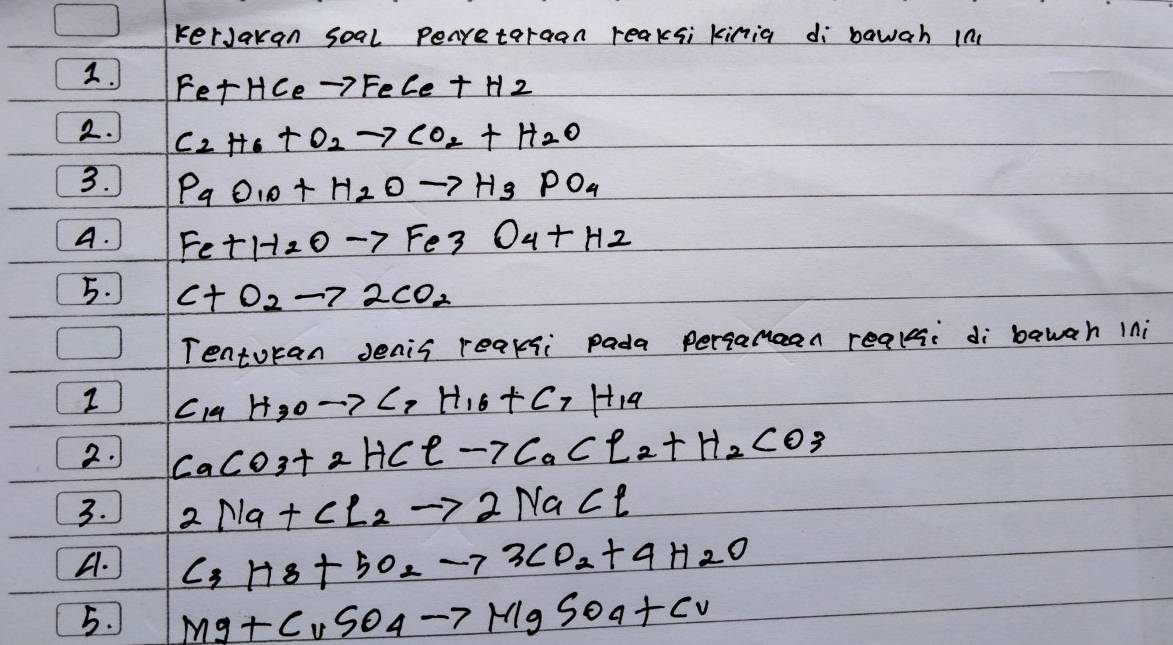 Kerjakan soal Penyetaraan reaksi kimia di bawah ini
1. Fe + HCe → FeCe + H2
2. C2H6 + O2 → CO2 + H2O
3. P4O10 + H2O → H3PO4
4. Fe + H2O → Fe3O4 + H2
5. C + O2 → 2CO2
Tentukan Jenis reaksi pada persamaan reaksi di bawah ini
1 C14H30 → C7H16 + C7H14
2. CaCO3 + 2HCl → CaCl2 + H2CO3
3. 2Na + Cl2 → 2NaCl
4. C3H8 + 5O2 → 3CO2 + 4H2O
5. Mg + CuSO4 → MgSO4 + Cu